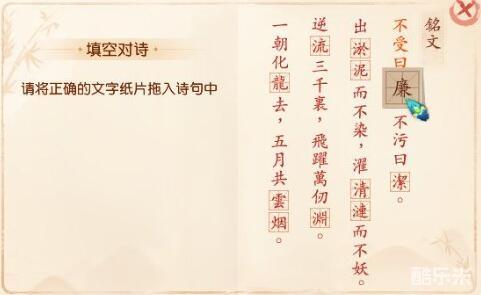 填空对诗
请将正确的文字纸片拖入诗句中
銘文
不受曰廉 不污曰潔。
出淤泥而不染，濯清漣而不妖。
逆流三千裏，飛躍萬仞淵。
一朝化龍去，五月共雲烟。
酷乐米